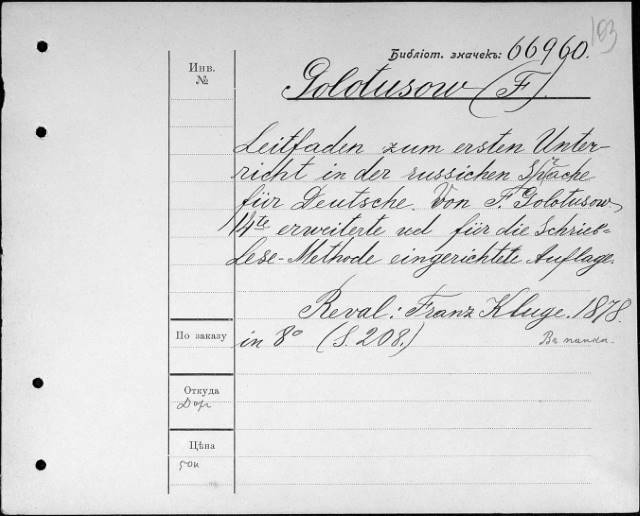 153
Библіот. значекъ: 66960.
Инв.
№
Golotusow (F)
Leitfaden zum ersten Unter-
richt in der russichen Sprache
für Deutsche. Von F. Golotusow
14te erweiterte ud für die Schrieb-
Lese-Methode eingerichtete Auflage.
Reval: Franz Kluge. 1878.
По заказу
in 8° (S. 208.)
Въ папка.
Откуда
Дер
Цѣна
50к